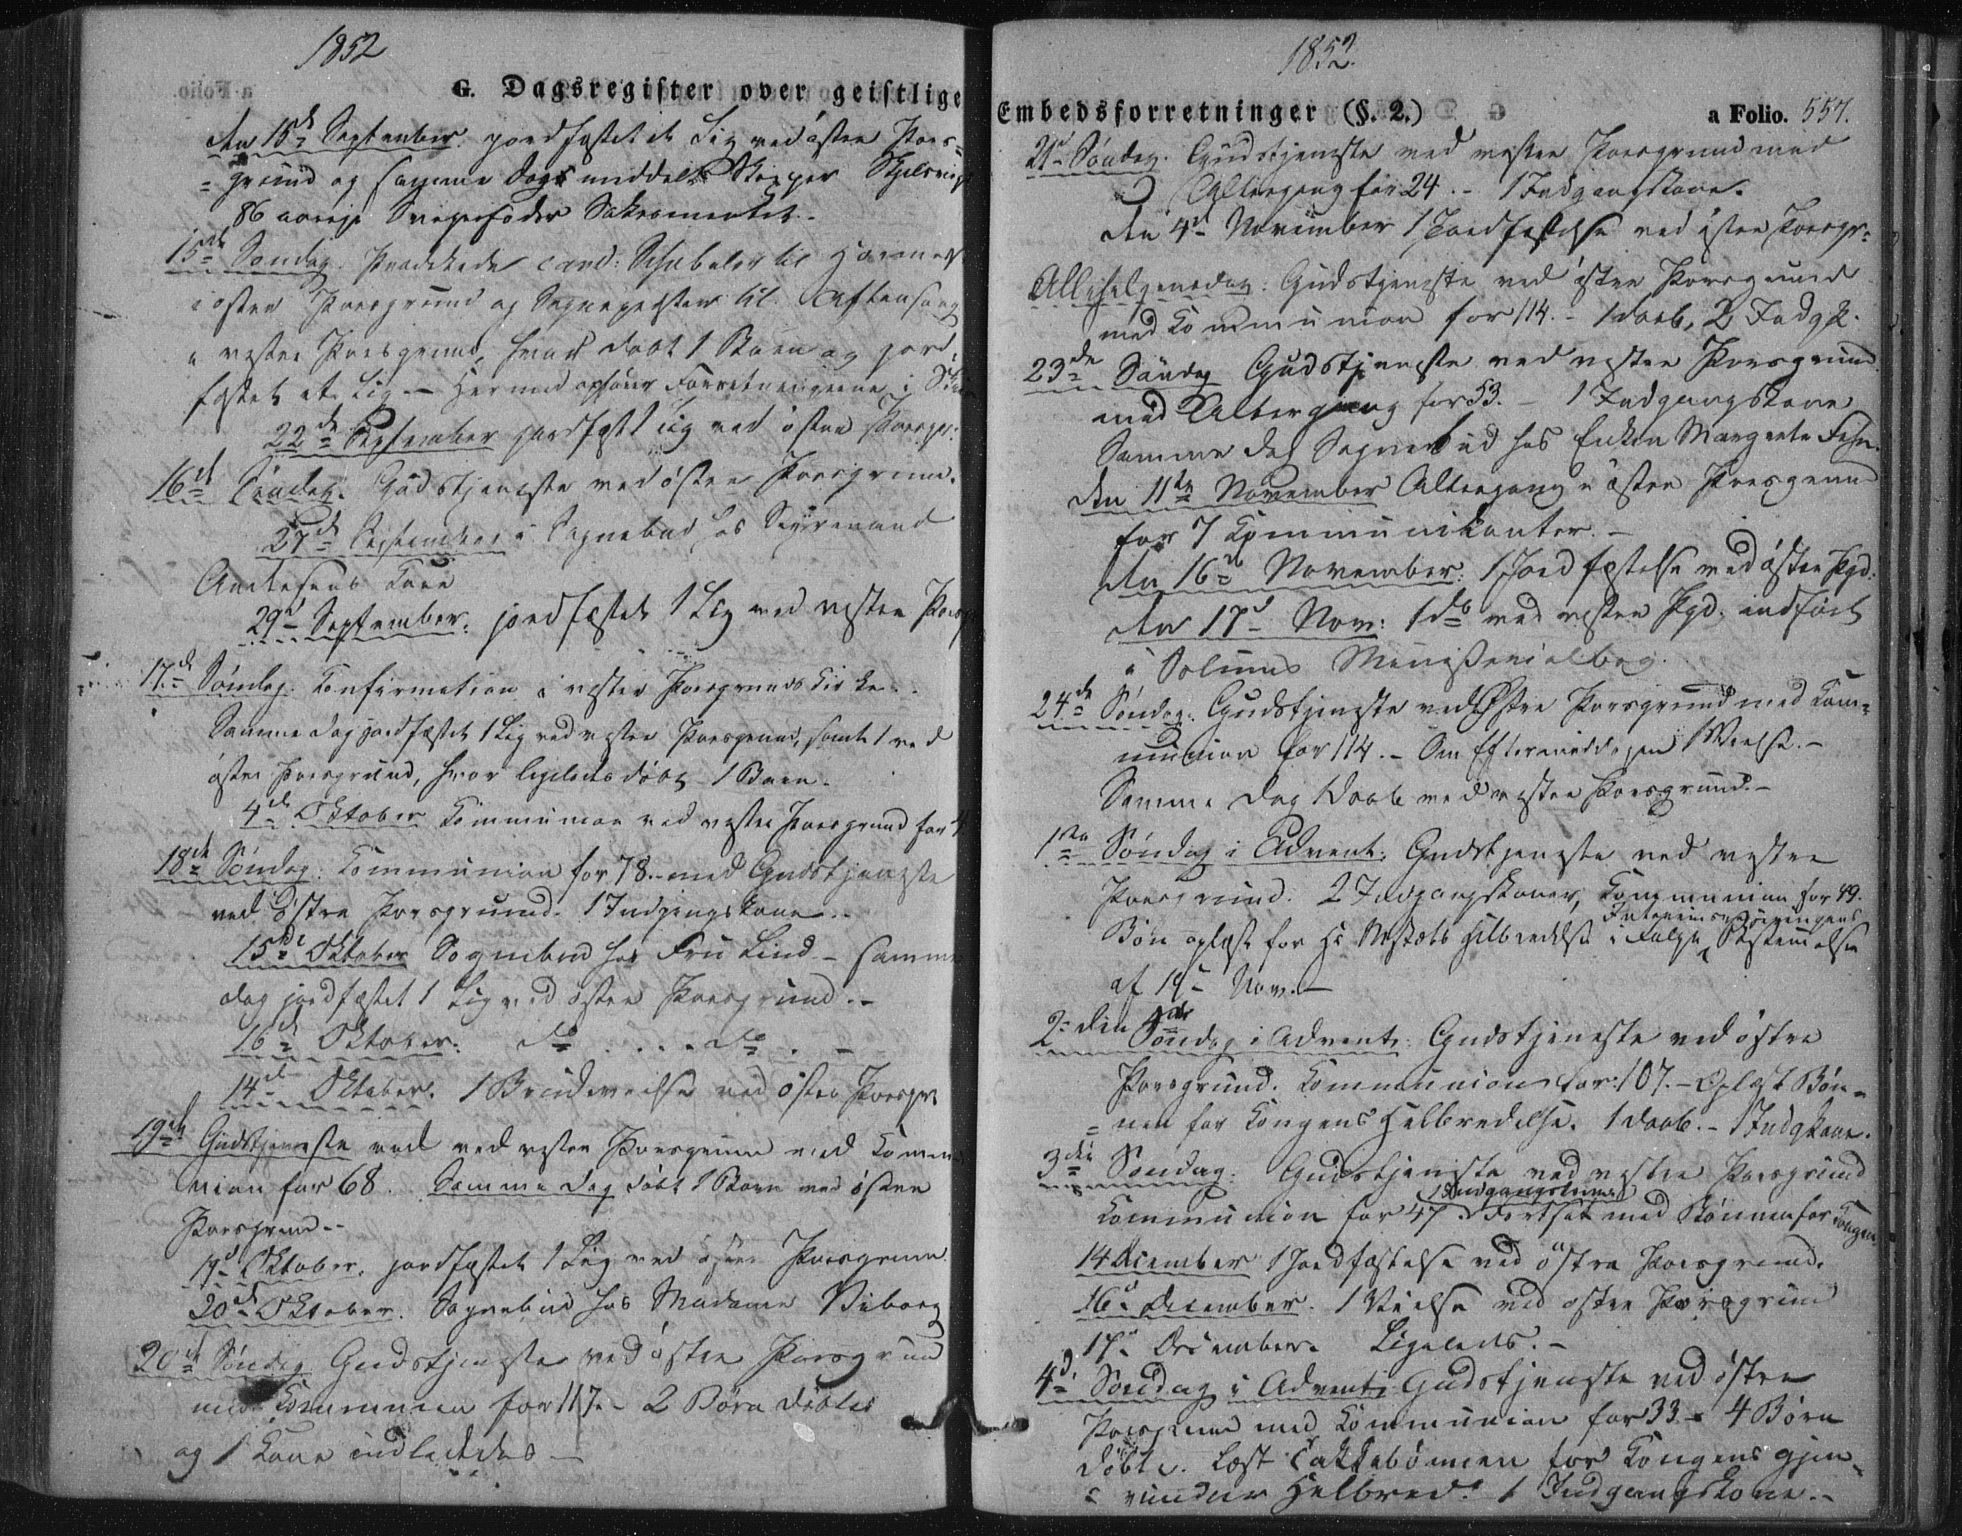 1852
G. Dagsregister over geistlige
den 15de September jordfæstet et Lig ved østre Pors=
=grund og samme Dag meddelt Skipper
86 aarige Svigerfader Sakramentet.
15de Søndag. Prædikede cand: Schübeler til
i østre Porsgrund og Sognepresten til Aftensang
i vestre Porsgrund, hvor døbt 1 Barn og jord=
fæstet et Lig — Hermed ophører Forretningerne i
22de September jordfæst 1 Lig ved østre Porsgr:
16de Søndag. Gudstjeneste ved østre Porsgrund.
27de September i Sognebud hos Styrmand
Andersens Kone
29de September. jordfæstet 1 Lig ved vestre Porsg
17de Søndag. Konfirmation i vestre Porsgrunds Kirke.
Samme Dag jordfæstet 1 Lig ved vestre Porsgrund, samt 1 ved
østre Porsgrund, hvor ligeledes døbt 1 Barn.
4de Oktober Kommunion ved vestre Porsgrund for
18de Søndag. Kommunion for 78. med Gudstjeneste
ved østre Porsgrund. 1 Indgangskone.
15de Oktober Sognebud hos Fru Lind – samme
Dag jordfæstet 1 Lig ved østre Porsgrund.–
16de Oktober. do . . . do . –
14de Oktober. 1 Brudevielse ved østre Porsgr.
19de Gudstjeneste ved ved vestre Porsgrund med Kommu
nion for 68. Samme Dag døbt 1 Barn ved østre
Porsgrund.–
19de Oktober. jordfæstet 1 Lig ved østre Porsgrund
20de Oktober. Sognebud hos Madame Viborg
20de Søndag Gudstjeneste ved østre Porsgrund
med Kommunion for 117.– 2 Børn døbtes
og 1 Kone indlededes –
1852.
Embedsforretninger (§. 2.)
a Folio. 557.
21de Søndag. Gudstjeneste ved vestre Porsgrund med
Altergang for 24.– 1 Indgangskone.
den 4de November 1 Jordfæstelse ved østre Porsgr=
Allehelgensdag: Gudstjeneste ved østre Porsgrund
med Kommunion for 114.– 1 Daab, 2 Indgk.
23de Søndag Gudstjeneste ved vestre Porsgrund
med Altergang for 53. – 1 Indgangskone
Samme Dag Sognebud hos Enken Margrete
den 11te November Altergang i østre Porsgrund
for 7 Kommunikanter.–
den 16de November: 1 Jordfæstelse ved østre Pgd:
den 17de Nov: 1 do ved vestre Pgd. indført
i Solums Ministerialbog.
24de Søndag. Gudstjeneste ved Østre Porsgrund med Kom=
munion for 114.– Om Eftermiddagen 1 Vielse.–
Samme Dag 1 Daab ved vestre Porsgrund.–
1ste Søndag i Advent: Gudstjeneste ved vestre
Porsgrund. 2 Indgangskoner, Kommunion for 49.
Interimsregjeringens
Bøn oplæst for Hs Majestæts Helbredelse i Følge Bestemmelse
af 19de Nov.–
2=den Søndag i Advent: Gudstjeneste ved østre
Porsgrund. Kommunion for: 107.– Oplæst Bøn=
=nen for Kongens Helbredelse. 1 Daab.– 1 Indgkone.
3die Søndag. Gudstjeneste ved vestre Porsgrund
1 Indgangskone
Kommunion for 47. Fortsat med Bønnen for Kongen
14 December 1 Jordfæstelse ved østre Porsgrund.
16de December. 1 Vielse ved østre Porsgrund
17de December. Ligeleds.–
4de Søndag i Advent: Gudstjeneste ved østre
Porsgrund med Kommunion for 33 – 4 Børn
døbte. Læst Takkebønnen for Kongens gjen=
=vundne Helbred. 1 Indgangskone.–